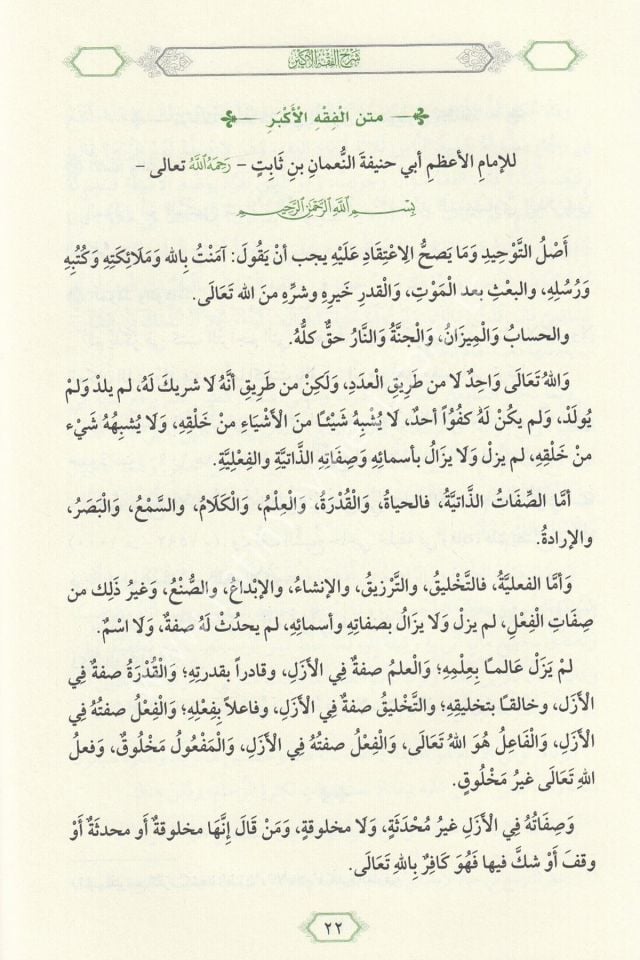 شرح الفقه الأكبر
متن الْفِقْهِ الْأَكْبَرِ
للإمامِ الأعظمِ أبي حنيفةَ النُّعمانِ بنِ ثَابِتٍ – رَحِمَهُ اللَّهُ تعالى –
بِسْمِ اللَّهِ الرَّحْمَنِ الرَّحِيمِ
أَصْلُ التَّوْحِيدِ وَمَا يَصحُّ الِاعْتِقَادِ عَلَيْهِ يجب أنْ يَقُولَ: آمَنْتُ بِاللهِ وَمَلَائِكَتِهِ وَكُتُبِهِ
وَرُسُلِهِ، والبعْثِ بعد الْمَوْتِ، وَالْقدرِ خَيرِهِ وشرِّهِ منَ الله تَعَالَى.
والحسابُ وَالْمِيزَانُ، وَالْجنَّةُ وَالنَّارُ حقٌّ كلهُ.
وَاللهُ تَعَالَى وَاحِدٌ لَا من طَرِيقِ الْعدَدِ، وَلَكِنْ من طَرِيقِ أنَّهُ لَا شريكَ لَهُ، لم يلدْ وَلمْ
يُولَدْ، وَلم يكُنْ لَهُ كفُوًا أحدٌ، لَا يُشْبِهُ شَيْئـًا منَ الْأَشْيَاءِ منْ خَلْقِهِ، وَلَا يُشبِهُهُ شَيْء
منْ خَلْقِهِ، لم يزلْ وَلَا يزَالُ بأسمائِهِ وَصِفَاتِهِ الذَّاتيَّةِ والفِعْلِيَّةِ.
أمَّا الصِّفَاتُ الذَّاتيَّةُ، فالحياةُ، وَالْقُدْرَةُ، وَالْعِلْمُ، وَالْكَلَامُ، والسَّمْعُ، وَالْبَصَرُ،
والإرادةُ.
وَأمَّا الفعليَّةُ، فالتَّخْليقُ، والتَّرْزيقُ، والإنشاءُ، والإبْداعُ، والصُّنْعُ، وَغيرُ ذَلِك من
صِفَاتِ الْفِعْلِ، لم يزلْ وَلَا يزَالُ بصفاتِهِ وأسمائِهِ، لم يحدُثْ لَهُ صفةٌ، وَلَا اسْمٌ.
لمْ يَزَلْ عَالمـا بِعِلْمِهِ؛ وَالْعلمُ صفةٌ فِي الْأَزَلِ، وقادراً بقدرتِهِ؛ وَالْقُدْرَةُ صفةٌ فِي
الْأزَلِ، وخالقـًا بتخليقِهِ؛ والتَّخْليقُ صفةٌ فِي الْأَزَلِ، وفاعلاً بِفِعْلِهِ؛ وَالْفِعْلُ صفتُهُ فِي
الْأَزَلِ، وَالْفَاعِلُ هُوَ اللهُ تَعَالَى، وَالْفِعْلُ صفتُهُ فِي الْأَزَلِ، وَالْمَفْعُولُ مَخْلُوقٌ، وَفعلُ
اللهِ تَعَالَى غيرُ مَخْلُوقٍ.
وَصِفَاتُهُ فِي الْأزَلِ غيرُ مُحْدَثَةٍ، وَلَا مخلوقةٍ، وَمَنْ قَالَ إِنَّهَا مخلوقةٌ أَو محدثةٌ أَوْ
وقفَ أَوْ شكَّ فيها فَهُوَ كَافِرٌ بِاللهِ تَعَالَى.
٢٢